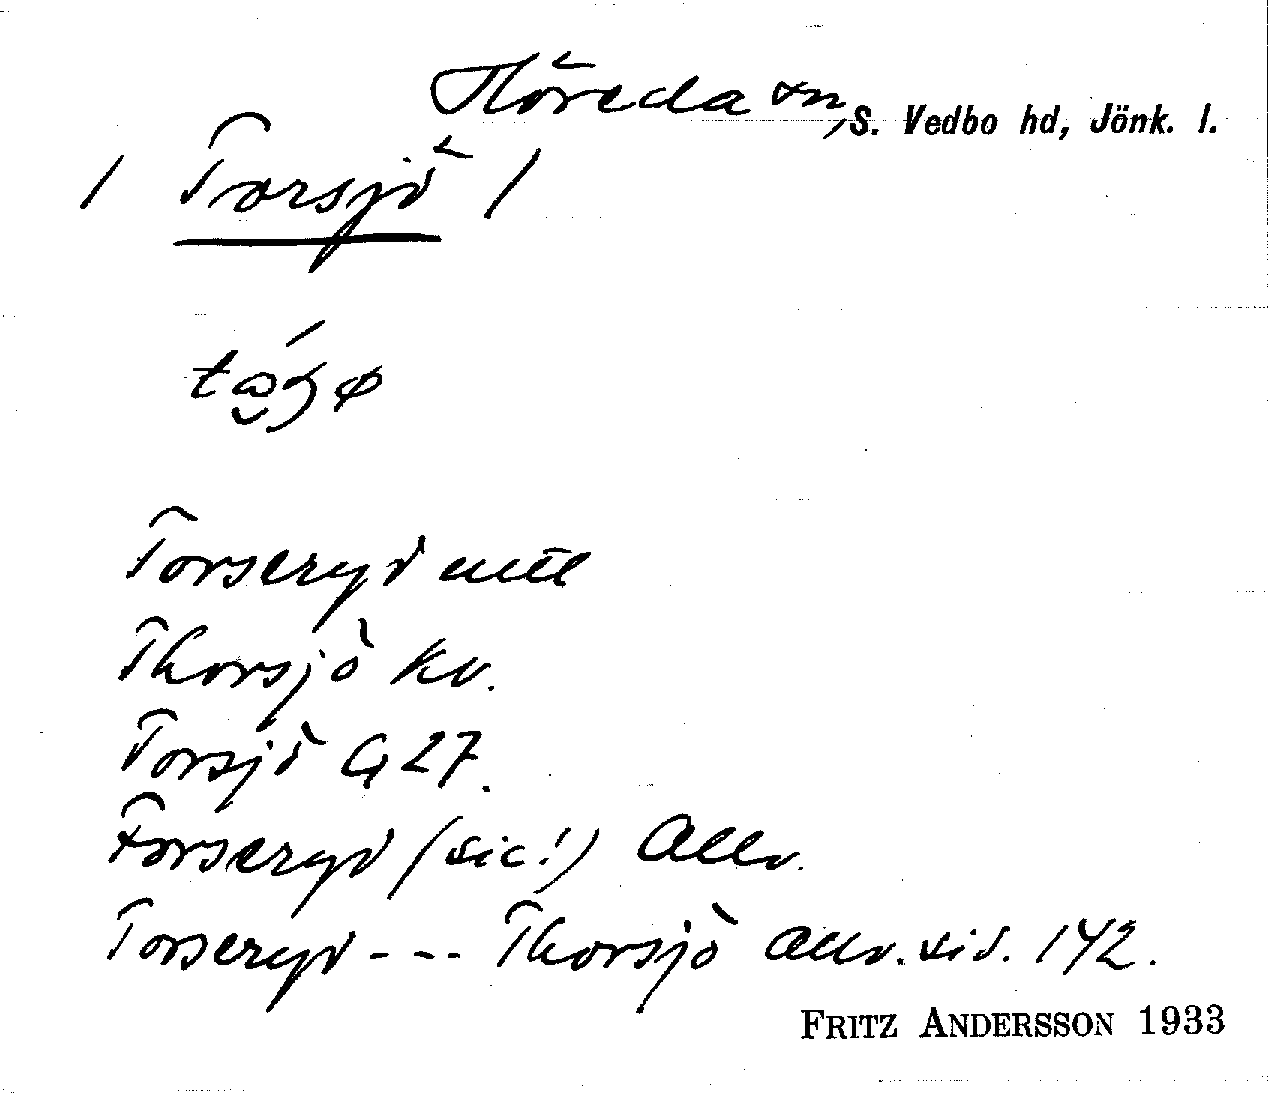 Höreda sn, S. Vedbo hd, Jönk. l.
/ Torsjö /
Torseryd mtl
Thorsjö kv.
Torsjö G 27.
Forseryd (sic!) Allv.
Torseryd --- Thorsjö Allv. sid. 142.
FRITZ ANDERSSON 1933